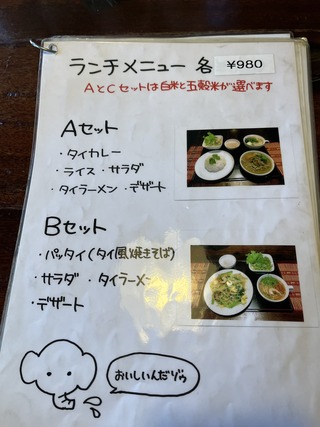 ランチメニュー 各 ¥980
AとCセットは白米と五穀米が選べます
Aセット
・タイカレー
・ライス ・サラダ
・タイラーメン ・デザート
Bセット
・パッタイ(タイ風焼きそば)
・サラダ ・タイラーメン
・デザート
おいしいんだゾゥ